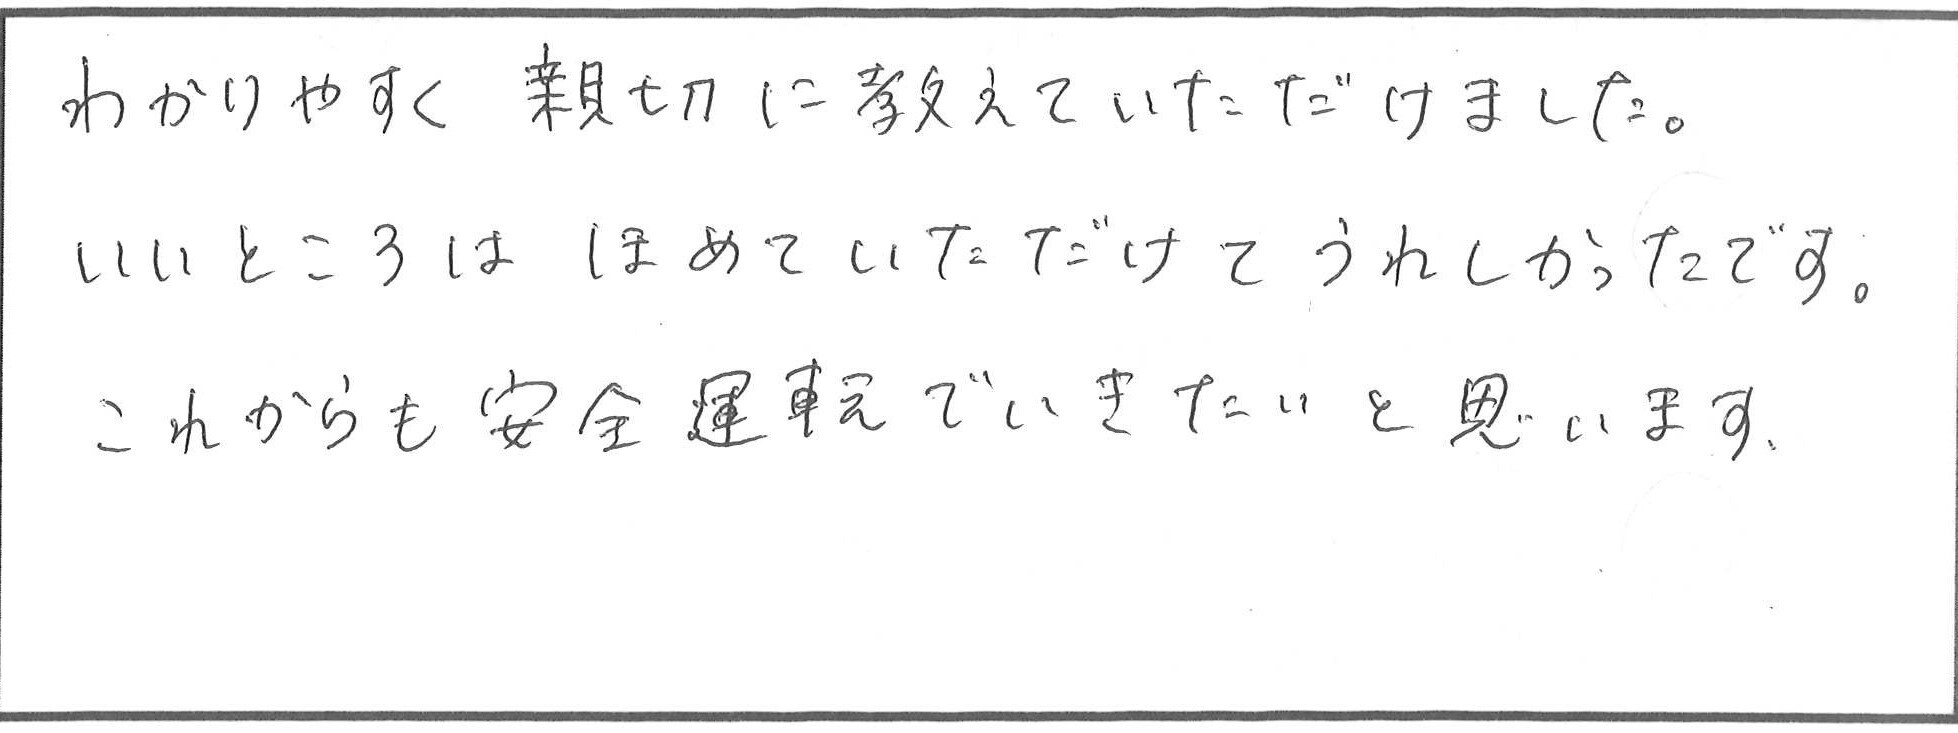 わかりやすく 親切に教えていただけました。
いいところは ほめていただけてうれしかったです。
これからも安全運転でいきたいと思います。